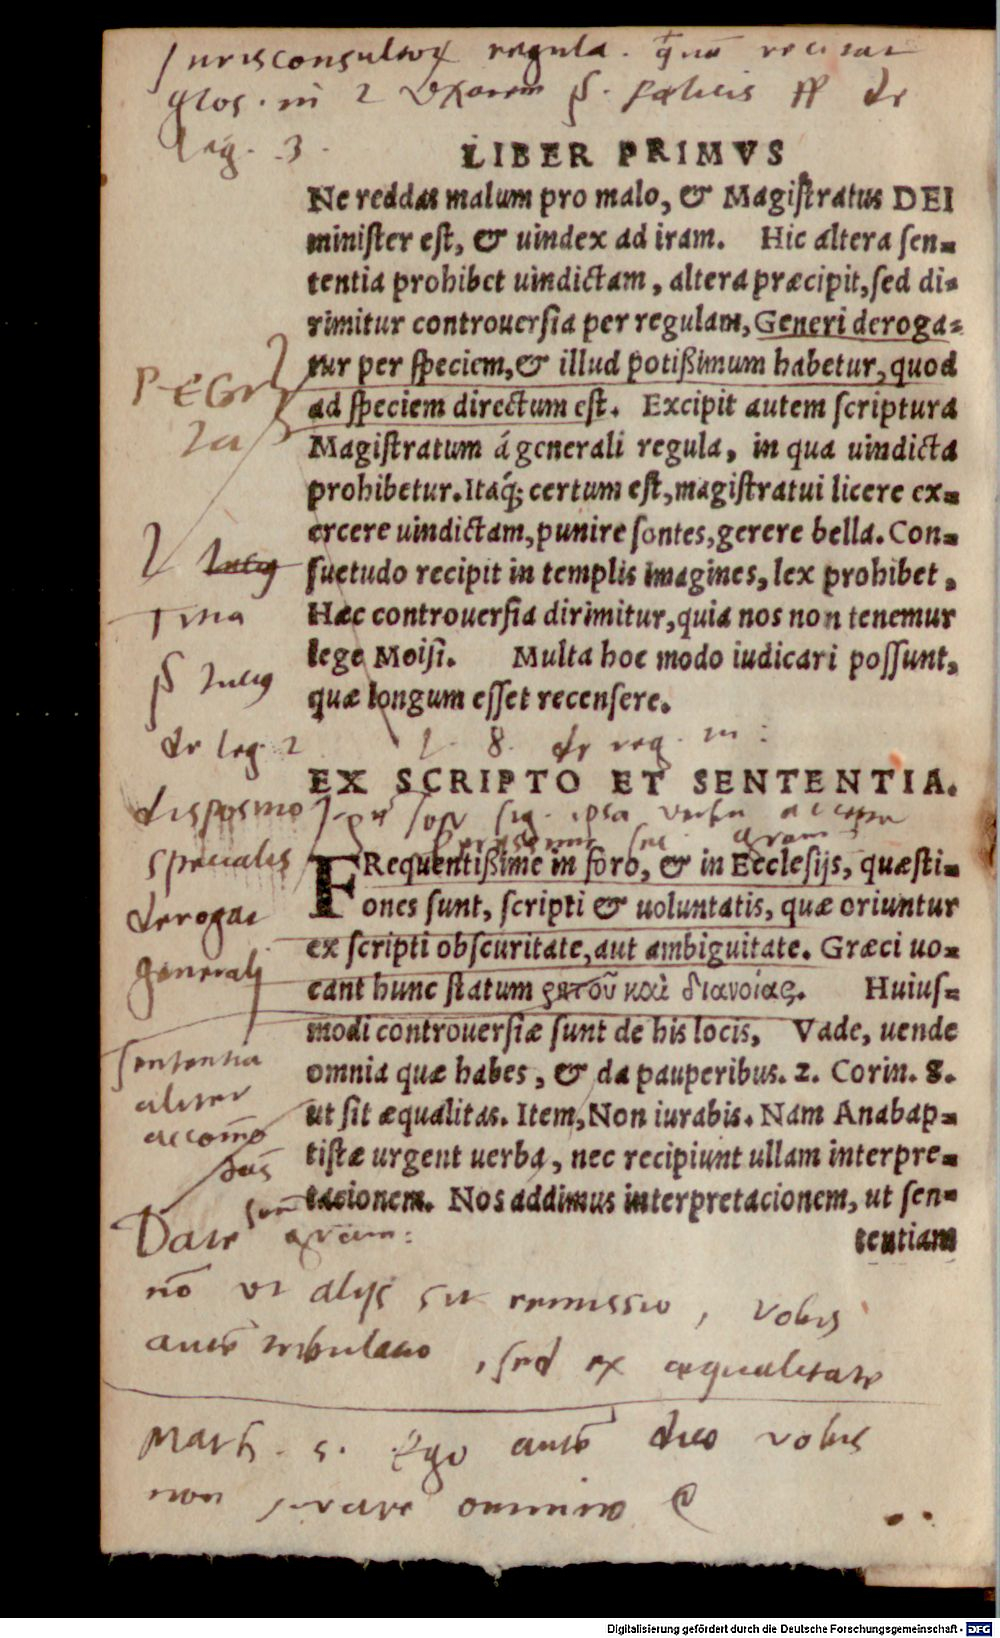 Jurisconsultorꝝ regula. quā recitat
glos. in l Uxorem § . felicis ff de
leg. 3.
LIBER PRIMVS
Ne reddas malum pro malo, & Magiſtratus DEI
miniſter eſt, & uindex ad iram. Hic altera ſen=
tentia prohibet uindictam, altera præcipit, ſed di=
rimitur controuerſia per regulam, Generi deroga=
tur per ſpeciem, & illud potißimum habetur, quod
ad ſpeciem directum eſt. Excipit autem ſcriptura
Magiſtratum á generali regula, in qua uindicta
prohibetur. Itaq́; certum eſt, magiſtratui licere ex=
ercere uindictam, punire ſontes, gerere bella. Con=
ſuetudo recipit in templis imagines, lex prohibet,
Hæc controuerſia dirimitur, quia nos non tenemur
lege Moiſi. Multa hoc modo iudicari poſſunt,
quæ longum eſſet recenſere.
de leg. 2
l. 8. de reg.
EX SCRIPTO ET SENTENTIA.
ipsa verba
dispositio
specialis
derogat
generali
FRequentißime in foro, & in Eccleſijs, quæſti=
ones ſunt, ſcripti & uoluntatis, quæ oriuntur
ex ſcripti obſcuritate, aut ambiguitate. Græci uo=
cant hunc ſtatum ῥητοῦ καὶ διανοίας. Huiuſ=
modi controuerſiæ ſunt de his locis, Vade, uende
omnia quæ habes, & da pauperibus. 2. Corin. 8.
ut ſit æqualitas. Item, Non iurabis. Nam Anabap=
tiſtæ urgent uerba, nec recipiunt ullam interpre=
tacionem. Nos addimus interpretacionem, ut ſen=
tentiam
sententia
aliter
accomo
Date
nō ut alijs sit remissio, vobis
autē tribulatio, sed ex æqualitate
Matth. 5. Ego autē dico vobis
non iurare omnino
Digitalisierung gefördert durch die Deutsche Forschungsgemeinschaft - DFG